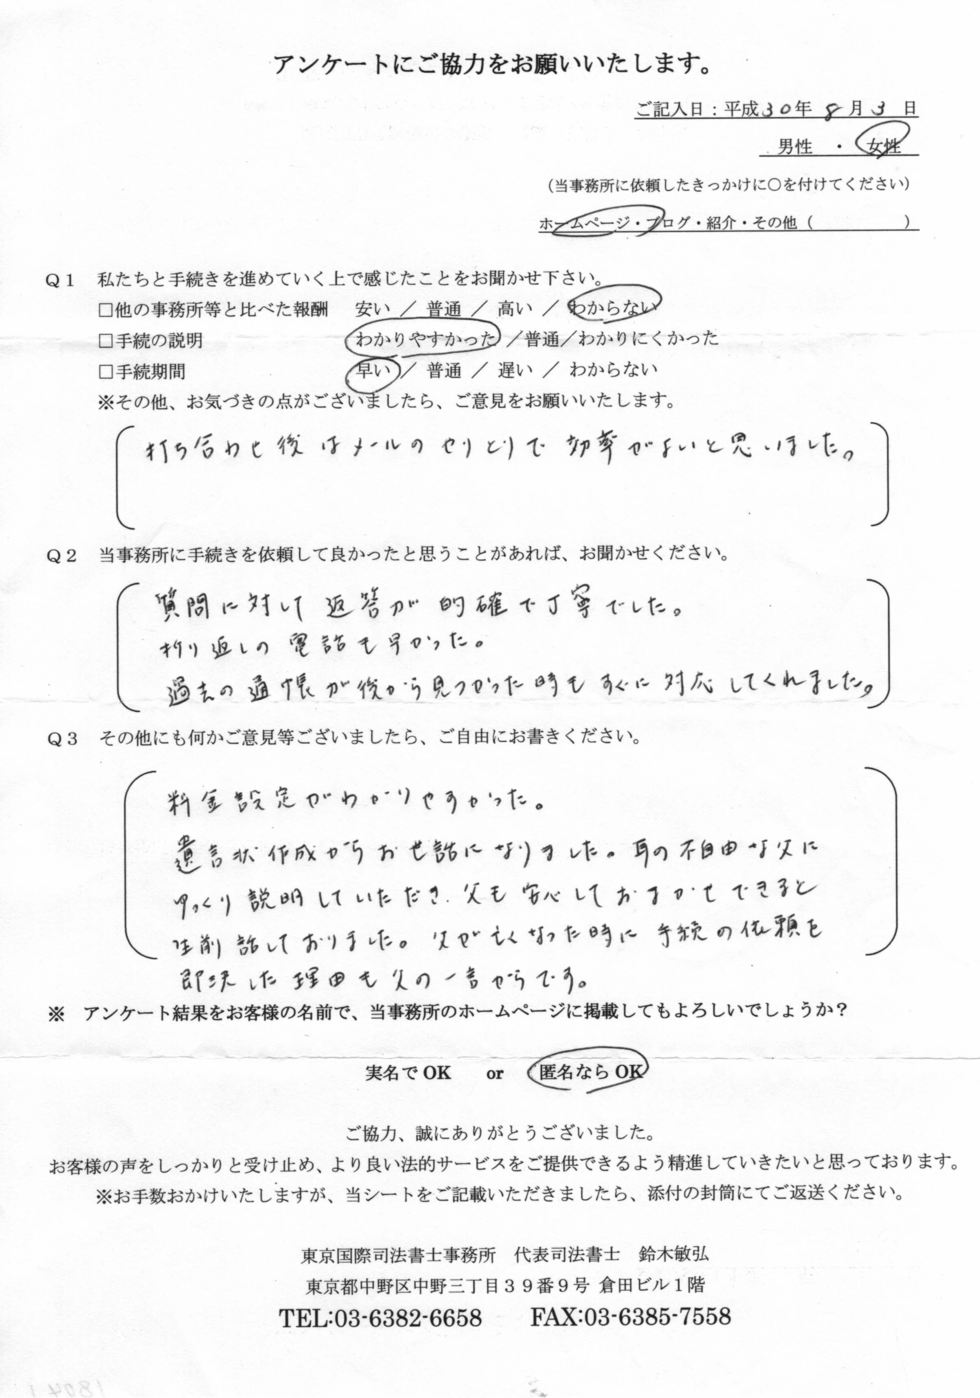 アンケートにご協力をお願いいたします。
ご記入日：平成30年 8月 3日
男性 ・ 女性
（当事務所に依頼したきっかけに○を付けてください）
ホームページ・ブログ・紹介・その他（　　　　　）
Q1 私たちと手続きを進めていく上で感じたことをお聞かせ下さい。
□他の事務所等と比べた報酬 安い ／ 普通 ／ 高い ／ わからない
□手続の説明 わかりやすかった ／普通／わかりにくかった
□手続期間 早い ／ 普通 ／ 遅い ／ わからない
※その他、お気づきの点がございましたら、ご意見をお願いいたします。
打ち合わせ後はメールのやりとりで効率がよいと思いました。
Q2 当事務所に手続きを依頼して良かったと思うことがあれば、お聞かせください。
質問に対して返答が的確で丁寧でした。
折り返しの電話も早かった。
過去の通帳が後から見つかった時もすぐに対応してくれました。
Q3 その他にも何かご意見等ございましたら、ご自由にお書きください。
料金設定がわかりやすかった。
遺言状作成からお世話になりました。耳の不自由な父に
ゆっくり説明していただき、父も安心しておまかせできると
生前話しておりました。父が亡くなった時に手続の依頼を
即決した理由も父の一言からです。
※ アンケート結果をお客様の名前で、当事務所のホームページに掲載してもよろしいでしょうか？
実名でOK or 匿名ならOK
ご協力、誠にありがとうございました。
お客様の声をしっかりと受け止め、より良い法的サービスをご提供できるよう精進していきたいと思っております。
※お手数おかけいたしますが、当シートをご記載いただきましたら、添付の封筒にてご返送ください。
東京国際司法書士事務所 代表司法書士 鈴木敏弘
東京都中野区中野三丁目39番9号 倉田ビル1階
TEL:03-6382-6658 FAX:03-6385-7558